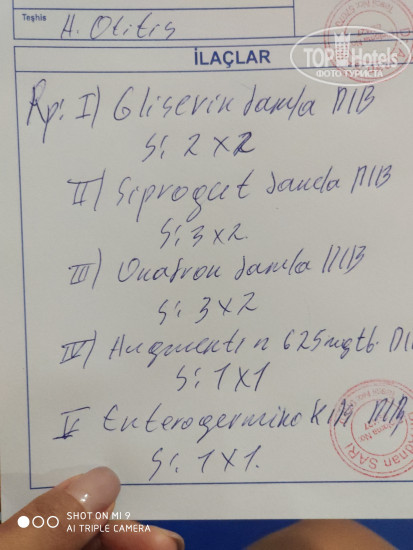 Teşhis
A. Otitis
İLAÇLAR
TOP Hotels
ФОТО ТУРИСТА
Rp: I) Gliserin damla
S: 2 x 2
II) Siproqut damla
S: 3 x 2
III) Onafron damla
S: 3 x 2
IV) Augmentin 625mg tb.
S: 1 x 1
V Enterogermina
S: 1 x 1.
SARI
SHOT ON MI 9
AI TRIPLE CAMERA